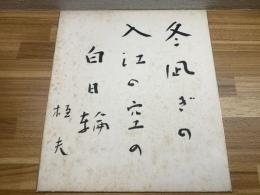 冬凪ぎの
入江の空の
白日輪
恒夫